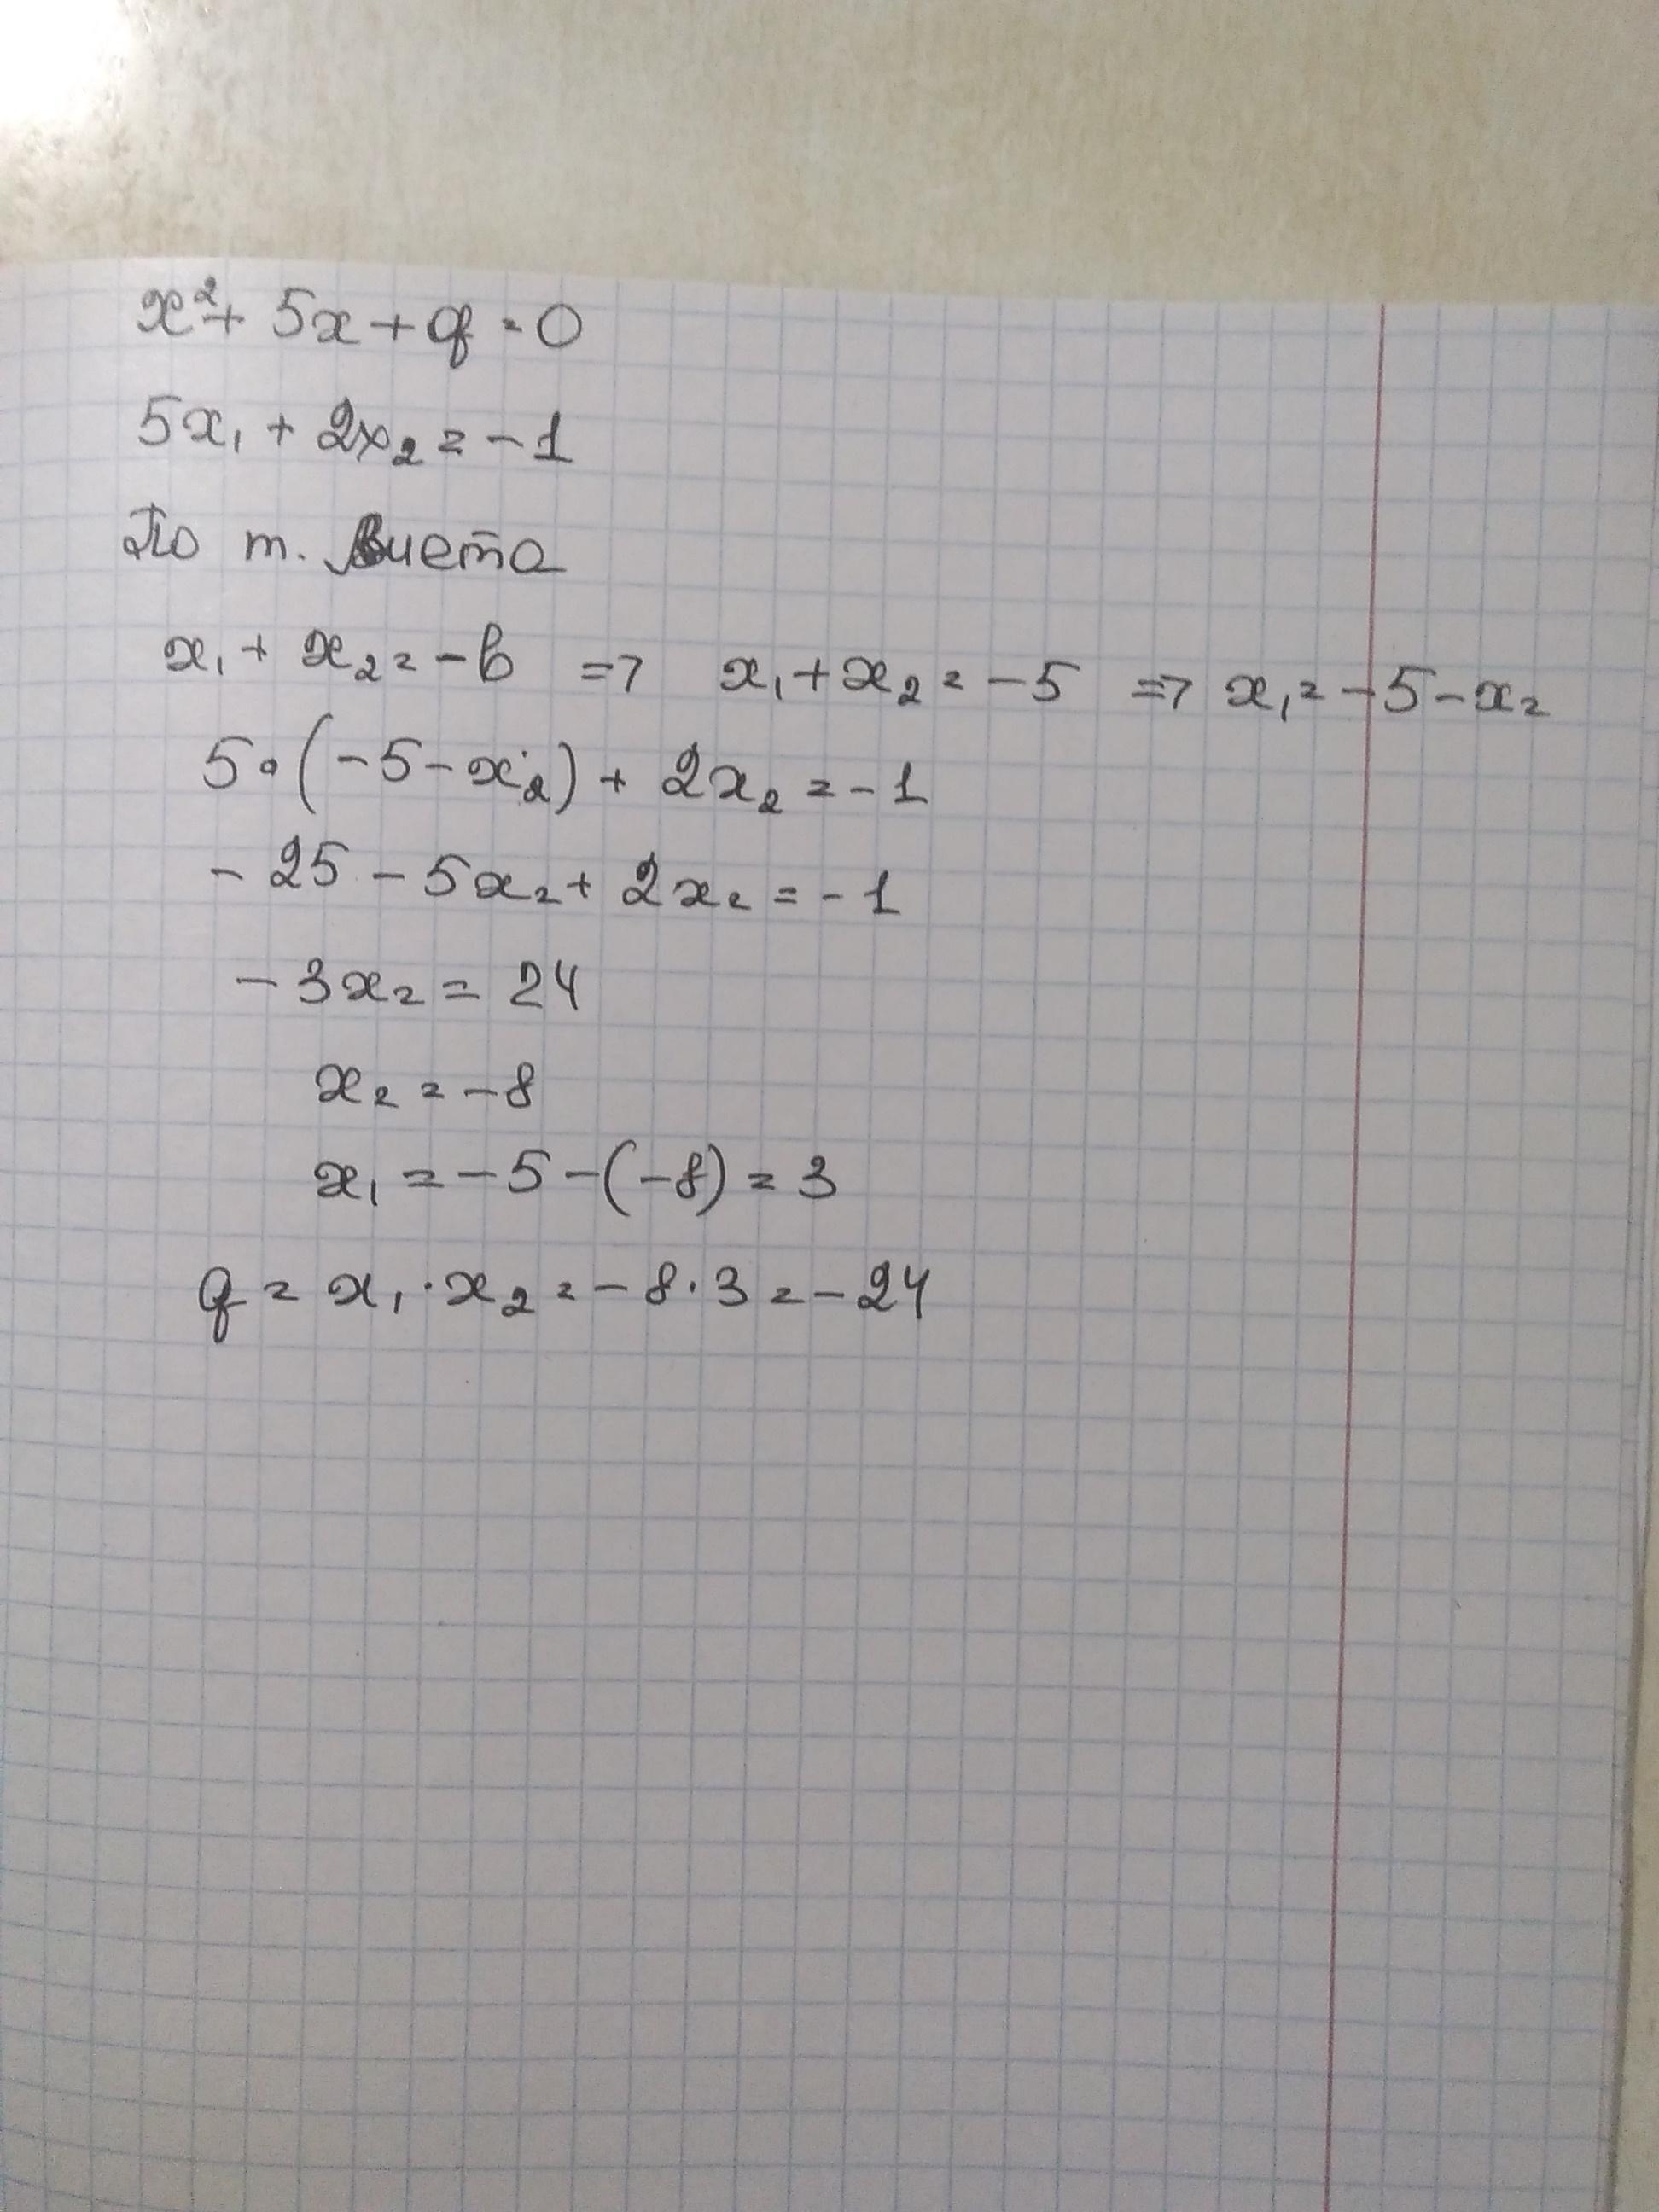 x² + 5x + q = 0
5x₁ + 2x₂ = -1
По т. Виета
x₁ + x₂ = -b => x₁ + x₂ = -5 => x₁ = -5 - x₂
5·(-5 - x₂) + 2x₂ = -1
- 25 - 5x₂ + 2x₂ = -1
- 3x₂ = 24
x₂ = -8
x₁ = -5 - (-8) = 3
q = x₁ · x₂ = -8 · 3 = -24